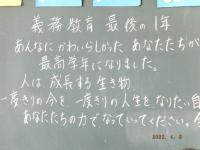 義務教育 最後の1年
あんなに かわいらしかった あなたたちが
最高学年になりました。
人は 成長する 生き物
一度きりの今を 一度きりの人生を なりたい自
あなたたちの力で なっていってください。
2022. 4. 8